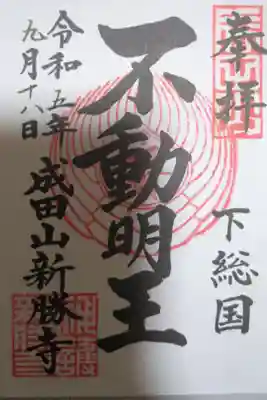 奉拝
下総国
不動明王
成田山新勝寺
令和五年
九月十八日